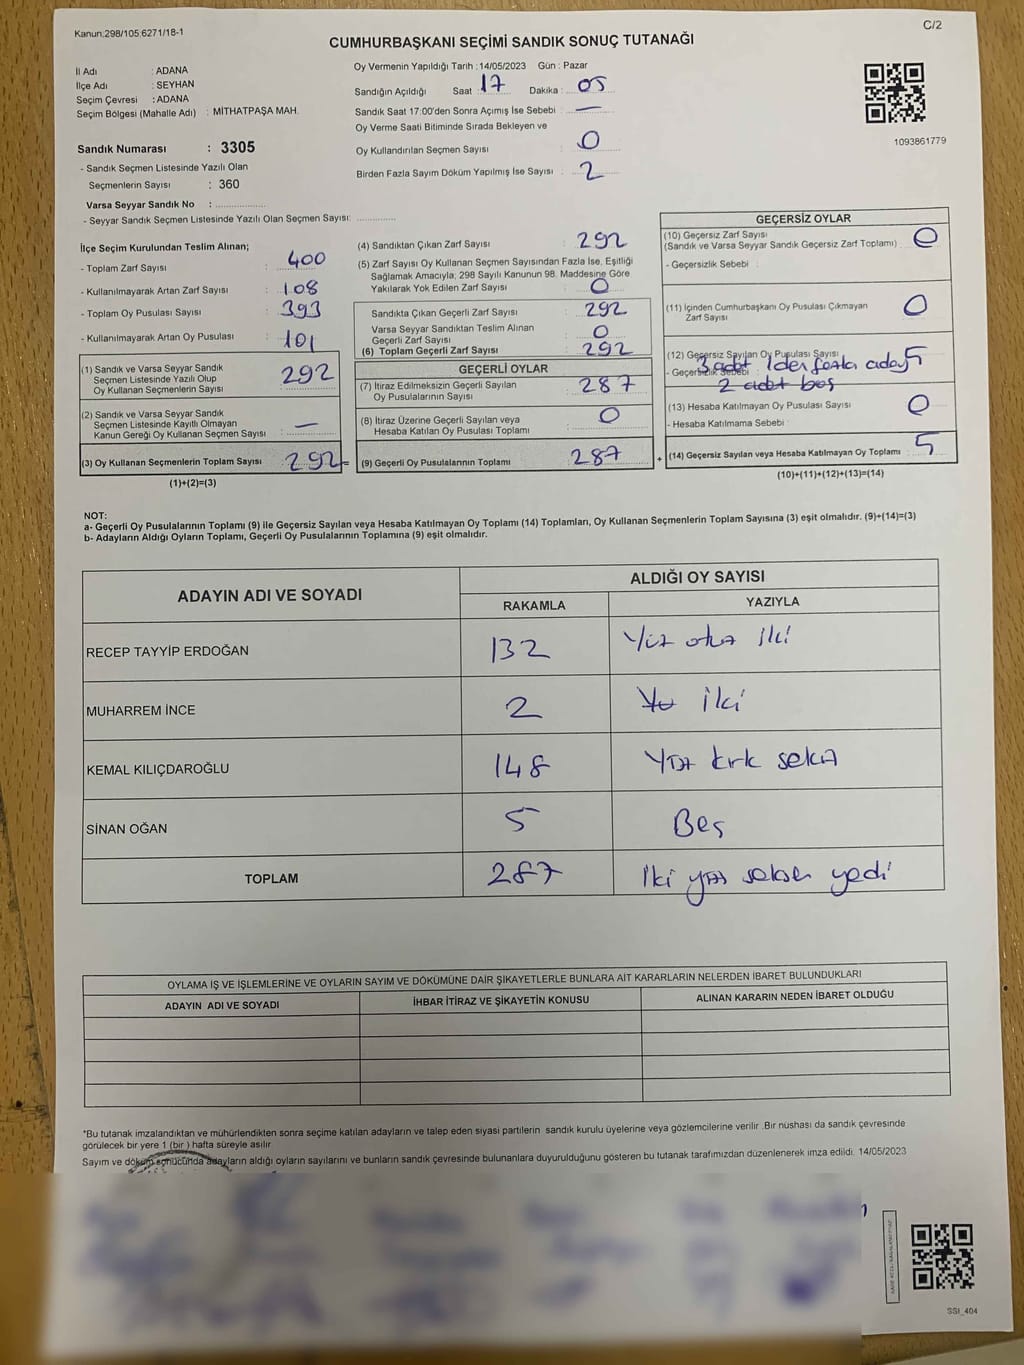 Kanun:298/105;6271/18-1
C/2
CUMHURBAŞKANI SEÇİMİ SANDIK SONUÇ TUTANAĞI
İl Adı : ADANA
İlçe Adı : SEYHAN
Seçim Çevresi : ADANA
Seçim Bölgesi (Mahalle Adı) : MİTHATPAŞA MAH.
Sandık Numarası : 3305
- Sandık Seçmen Listesinde Yazılı Olan
Seçmenlerin Sayısı : 360
Varsa Seyyar Sandık No :
- Seyyar Sandık Seçmen Listesinde Yazılı Olan Seçmen Sayısı:
Oy Vermenin Yapıldığı Tarih : 14/05/2023 Gün : Pazar
Sandığın Açıldığı Saat : 17 Dakika : 05
Sandık Saat 17:00'den Sonra Açımış İse Sebebi : —
Oy Verme Saati Bitiminde Sırada Bekleyen ve
Oy Kullandırılan Seçmen Sayısı : 0
Birden Fazla Sayım Döküm Yapılmış İse Sayısı : 2
1093861779
İlçe Seçim Kurulundan Teslim Alınan;
- Toplam Zarf Sayısı : 400
- Kullanılmayarak Artan Zarf Sayısı : 108
- Toplam Oy Pusulası Sayısı : 393
- Kullanılmayarak Artan Oy Pusulası : 101
(1) Sandık ve Varsa Seyyar Sandık
Seçmen Listesinde Yazılı Olup
Oy Kullanan Seçmenlerin Sayısı : 292
(2) Sandık ve Varsa Seyyar Sandık
Seçmen Listesinde Kayıtlı Olmayan
Kanun Gereği Oy Kullanan Seçmen Sayısı : —
(3) Oy Kullanan Seçmenlerin Toplam Sayısı : 292 =
(1)+(2)=(3)
(4) Sandıktan Çıkan Zarf Sayısı : 292
(5) Zarf Sayısı Oy Kullanan Seçmen Sayısından Fazla İse, Eşitliği
Sağlamak Amacıyla; 298 Sayılı Kanunun 98. Maddesine Göre
Yakılarak Yok Edilen Zarf Sayısı : 0
Sandıkta Çıkan Geçerli Zarf Sayısı : 292
Varsa Seyyar Sandıktan Teslim Alınan
Geçerli Zarf Sayısı : 0
(6) Toplam Geçerli Zarf Sayısı : 292
GEÇERLİ OYLAR
(7) İtiraz Edilmeksizin Geçerli Sayılan
Oy Pusulalarının Sayısı : 287
(8) İtiraz Üzerine Geçerli Sayılan veya
Hesaba Katılan Oy Pusulası Toplamı : 0
(9) Geçerli Oy Pusulalarının Toplamı : 287 +
GEÇERSİZ OYLAR
(10) Geçersiz Zarf Sayısı
(Sandık ve Varsa Seyyar Sandık Geçersiz Zarf Toplamı) : 0
- Geçersizlik Sebebi :
(11) İçinden Cumhurbaşkanı Oy Pusulası Çıkmayan
Zarf Sayısı : 0
(12) Geçersiz Sayılan Oy Pusulası Sayısı : 5
- Geçersizlik Sebebi : 3 adet 1 den fazla aday
2 adet boş
(13) Hesaba Katılmayan Oy Pusulası Sayısı : 0
- Hesaba Katılmama Sebebi :
(14) Geçersiz Sayılan veya Hesaba Katılmayan Oy Toplamı : 5
(10)+(11)+(12)+(13)=(14)
NOT:
a- Geçerli Oy Pusulalarının Toplamı (9) ile Geçersiz Sayılan veya Hesaba Katılmayan Oy Toplamı (14) Toplamları, Oy Kullanan Seçmenlerin Toplam Sayısına (3) eşit olmalıdır. (9)+(14)=(3)
b- Adayların Aldığı Oyların Toplamı, Geçerli Oy Pusulalarının Toplamına (9) eşit olmalıdır.
ADAYIN ADI VE SOYADI ALDIĞI OY SAYISI
RAKAMLA YAZIYLA
RECEP TAYYİP ERDOĞAN 132 Yüz otuz iki
MUHARREM İNCE 2 iki
KEMAL KILIÇDAROĞLU 148 Yüz kırk sekiz
SİNAN OĞAN 5 Beş
TOPLAM 287 İki yüz seksen yedi
OYLAMA İŞ VE İŞLEMLERİNE VE OYLARIN SAYIM VE DÖKÜMÜNE DAİR ŞİKAYETLERLE BUNLARA AİT KARARLARIN NELERDEN İBARET BULUNDUKLARI
ADAYIN ADI VE SOYADI İHBAR İTİRAZ VE ŞİKAYETİN KONUSU ALINAN KARARIN NEDEN İBARET OLDUĞU
*Bu tutanak imzalandıktan ve mühürlendikten sonra seçime katılan adayların ve talep eden siyasi partilerin sandık kurulu üyelerine veya gözlemcilerine verilir .Bir nüshası da sandık çevresinde
görülecek bir yere 1 (bir ) hafta süreyle asılır.
Sayım ve döküm sonucunda adayların aldığı oyların sayılarını ve bunların sandık çevresinde bulunanlara duyurulduğunu gösteren bu tutanak tarafımızdan düzenlenerek imza edildi. 14/05/2023
SSI_404